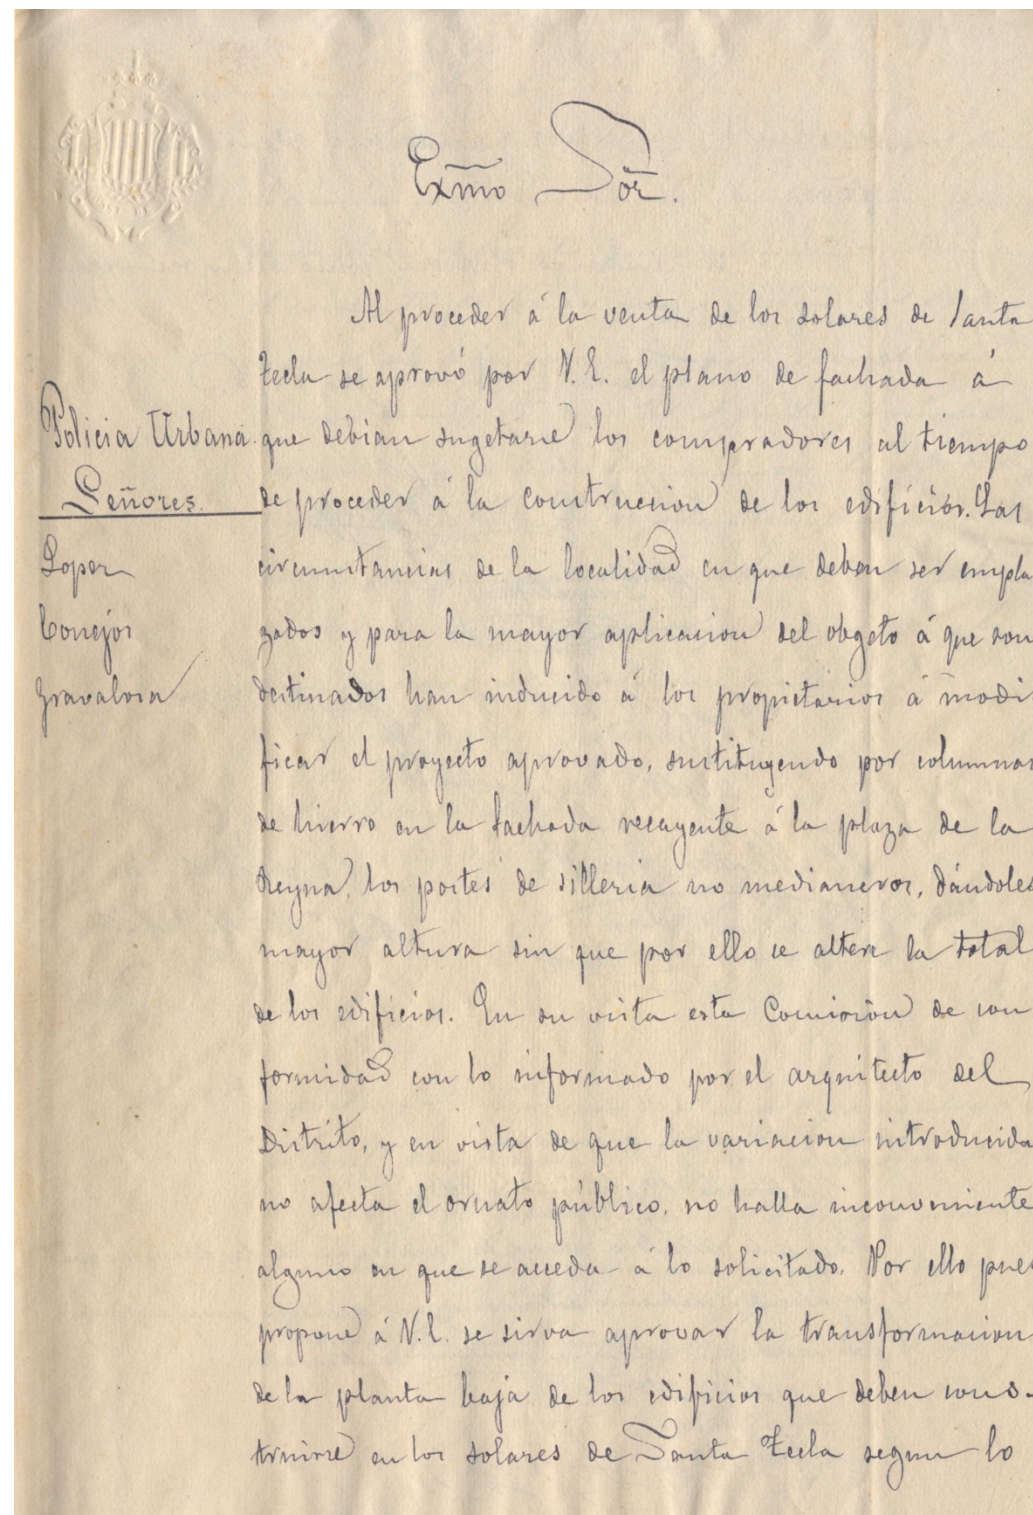 Exmo Sor.
Al proceder á la venta de los solares de Santa
Tecla se aprovó por V. E. el plano de fachada á
que debian sugetarse los compradores al tiempo
de proceder á la construccion de los edificios. Las
circunstancias de la localidad en que deben ser empla
zados y para la mayor aplicacion del obgeto á que son
destinados han inducido á los propietarios á modi
ficar el proyecto aprovado, sustituyendo por columnas
de hierro en la fachada recayente á la plaza de la
Reyna, los postes de silleria no medianeros, dándoles
mayor altura sin que por ello se altere la total
de los edificios. En su vista esta Comision de con
formidad con lo informado por el arquitecto del
Distrito, y en vista de que la variacion introducida
no afecta el ornato público, no halla inconveniente
alguno en que se acceda á lo solicitado. Por ello pues
propone á V. E. se sirva aprovar la transformacion
de la planta baja de los edificios que deben cons-
truirse en los solares de Santa Tecla segun lo
Policia Urbana.
Señores.
Lopez
Conejos